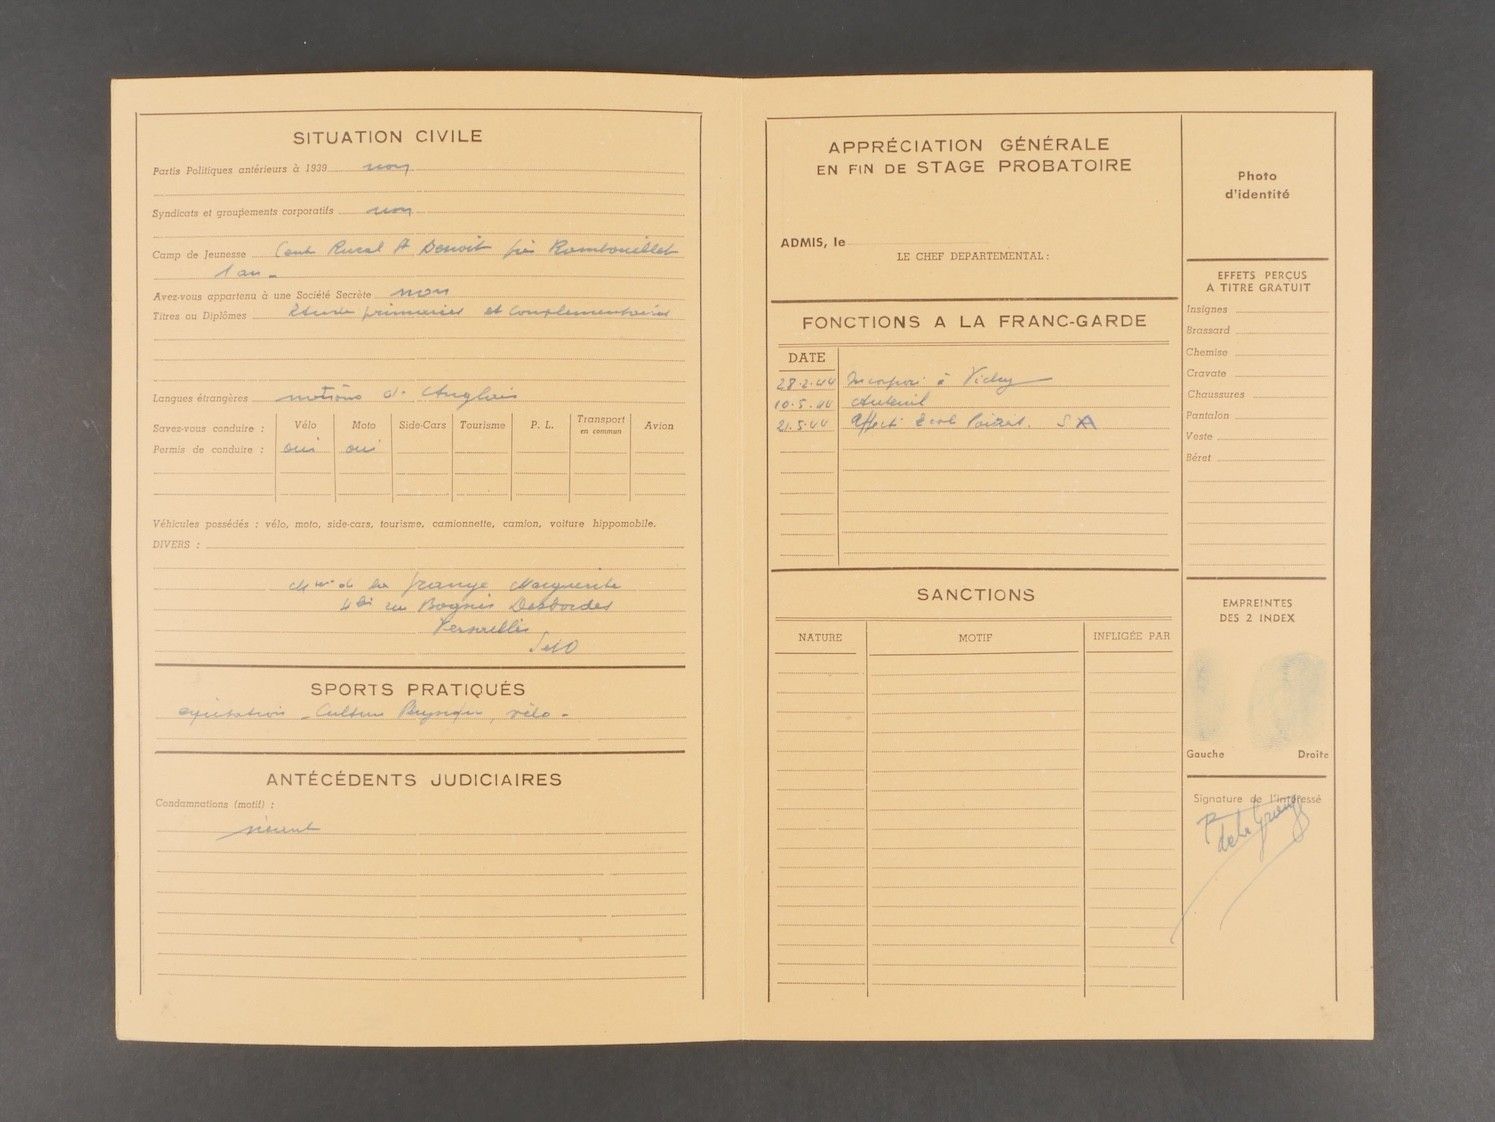 SITUATION CIVILE
Partis Politiques antérieurs à 1939 non
Syndicats et groupements corporatifs non
Camp de Jeunesse Cent Rural St Benoit près Rambouillet
1 an -
Avez-vous appartenu à une Société Secrète non
Titres ou Diplômes Etude primaires et complementaires
Langues étrangères notions d' Anglais
Savez-vous conduire : Vélo Moto Side-Cars Tourisme P. L. Transport en commun Avion
Permis de conduire : oui oui
Véhicules possédés : vélo, moto, side-cars, tourisme, camionnette, camion, voiture hippomobile.
DIVERS :
de la Grange Marguerite
4 bis rue Desbordes
Versailles
S et O
SPORTS PRATIQUÉS
equitation - Culture Physique, vélo -
ANTÉCÉDENTS JUDICIAIRES
Condamnations (motif) :
néant
APPRÉCIATION GÉNÉRALE
EN FIN DE STAGE PROBATOIRE
ADMIS, le
LE CHEF DEPARTEMENTAL :
FONCTIONS A LA FRANC-GARDE
DATE
28-2-44 Incorporé à Vichy
10-5-44 Auteuil
21-5-44 Affecté S A
SANCTIONS
NATURE MOTIF INFLIGÉE PAR
Photo
d'identité
EFFETS PERÇUS
A TITRE GRATUIT
Insignes
Brassard
Chemise
Cravate
Chaussures
Pantalon
Veste
Béret
EMPREINTES
DES 2 INDEX
Gauche Droite
Signature de l'intéressé
P de la Grange